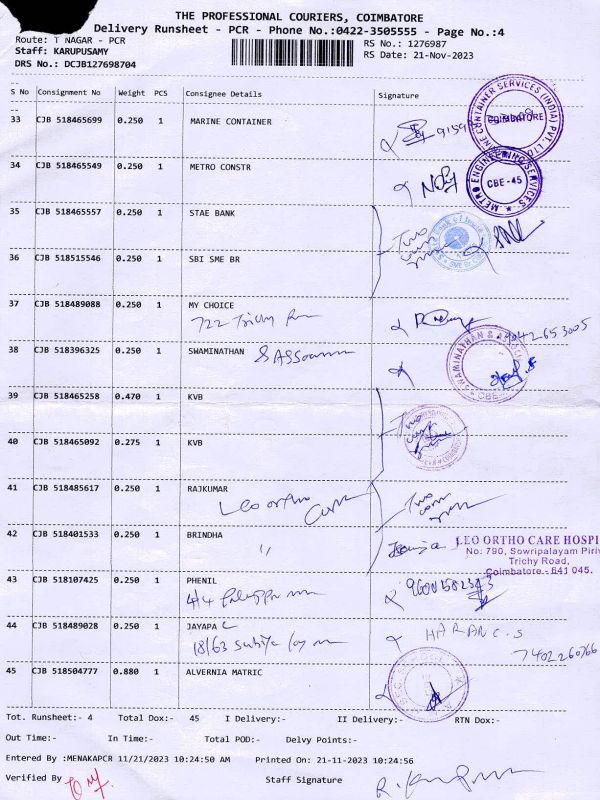 THE PROFESSIONAL COURIERS, COIMBATORE
Delivery Runsheet - PCR - Phone No.:0422-3505555 - Page No.:4
Route: T NAGAR - PCR
RS No.: 1276987
Staff: KARUPUSAMY
RS Date: 21-Nov-2023
DRS No.: DCJB127698704
S No Consignment No Weight PCS Consignee Details Signature
33 CJB 518465699 0.250 1 MARINE CONTAINER
COIMBATORE
34 CJB 518465549 0.250 1 METRO CONSTR
METRO ENGINEERING SERVICES
CBE-45
35 CJB 518465557 0.250 1 STAE BANK
Two
36 CJB 518515546 0.250 1 SBI SME BR
37 CJB 518489088 0.250 1 MY CHOICE
722 Trichy
38 CJB 518396325 0.250 1 SWAMINATHAN
39 CJB 518465258 0.470 1 KVB
Two
40 CJB 518465092 0.275 1 KVB
41 CJB 518485617 0.250 1 RAJKUMAR
Leo ortho
Two
42 CJB 518401533 0.250 1 BRINDHA
"
LEO ORTHO CARE HOSPI
No: 790, Sowripalayam Piriv
Trichy Road,
Coimbatore - 641 045.
43 CJB 518107425 0.250 1 PHENIL
44 CJB 518489028 0.250 1 JAYAPA
18/63
HARAN C.S
7402260766
45 CJB 518504777 0.880 1 ALVERNIA MATRIC
Tot. Runsheet:- 4 Total Dox:- 45 I Delivery:- II Delivery:- RTN Dox:-
Out Time:- In Time:- Total POD:- Delvy Points:-
Entered By :MENAKAPCR 11/21/2023 10:24:50 AM Printed On: 21-11-2023 10:24:56
Verified By
Staff Signature